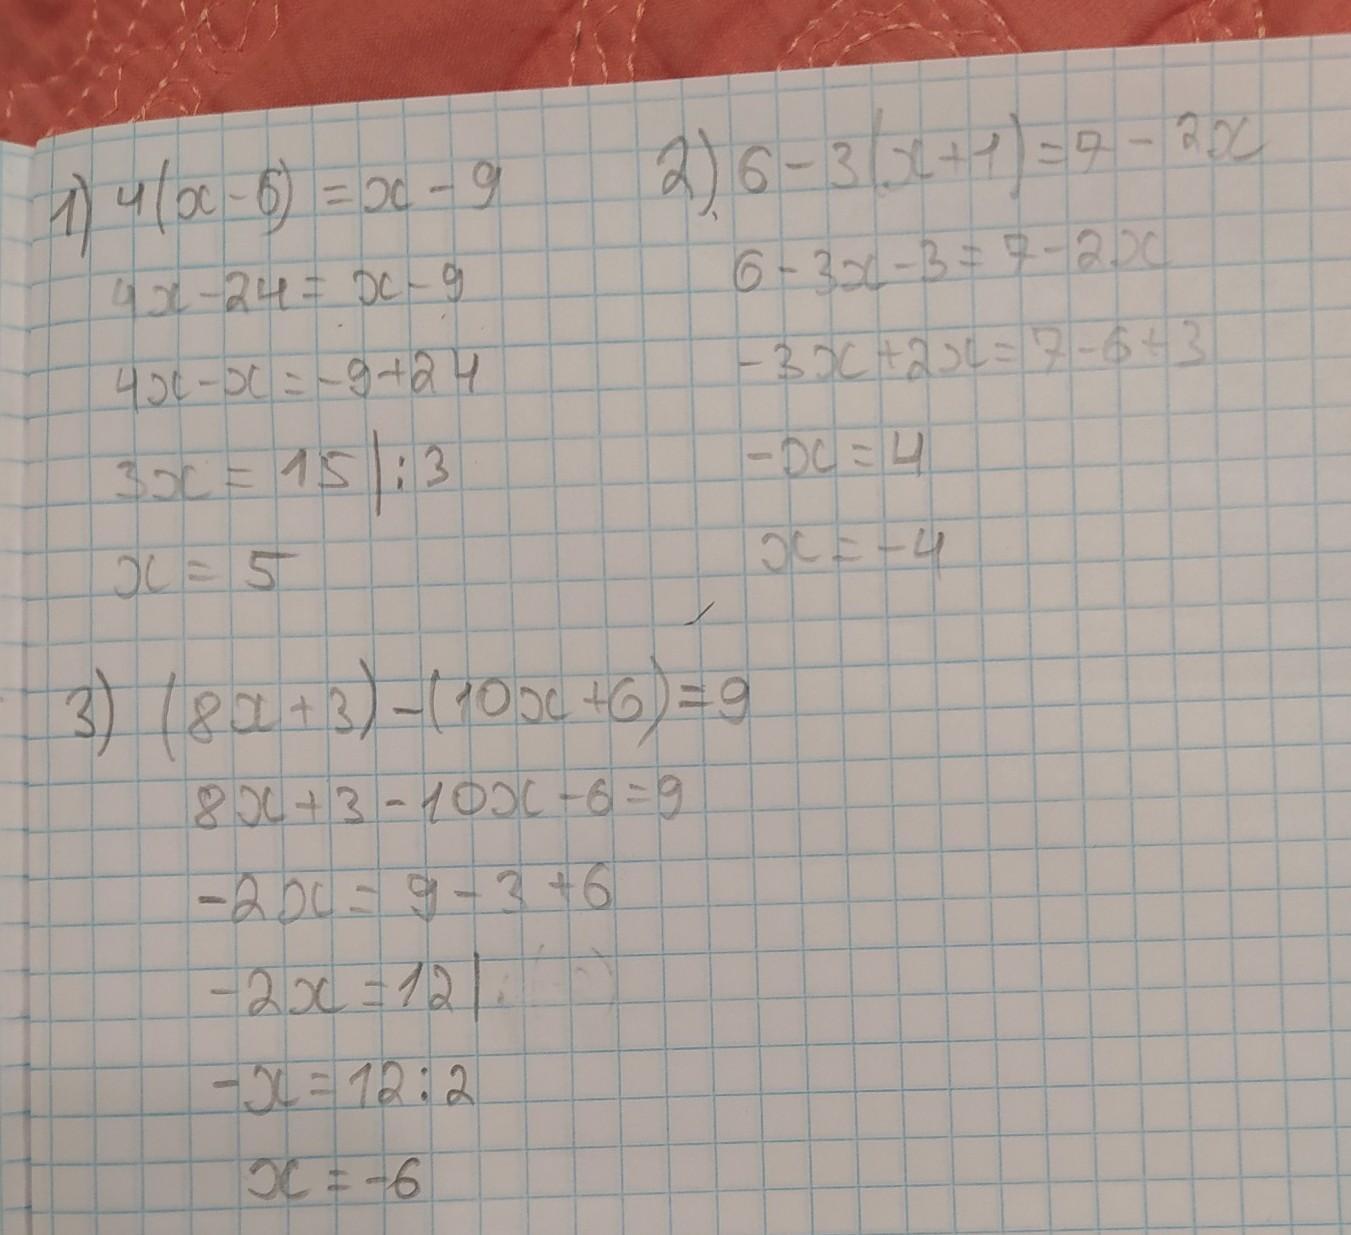 1) 4(x-6) = x - 9
4x - 24 = x - 9
4x - x = -9 + 24
3x = 15 | : 3
x = 5
2) 6 - 3(x+1) = 7 - 2x
6 - 3x - 3 = 7 - 2x
-3x + 2x = 7 - 6 + 3
-x = 4
x = -4
3) (8x + 3) - (10x + 6) = 9
8x + 3 - 10x - 6 = 9
-2x = 9 - 3 + 6
-2x = 12 |
-x = 12 : 2
x = -6